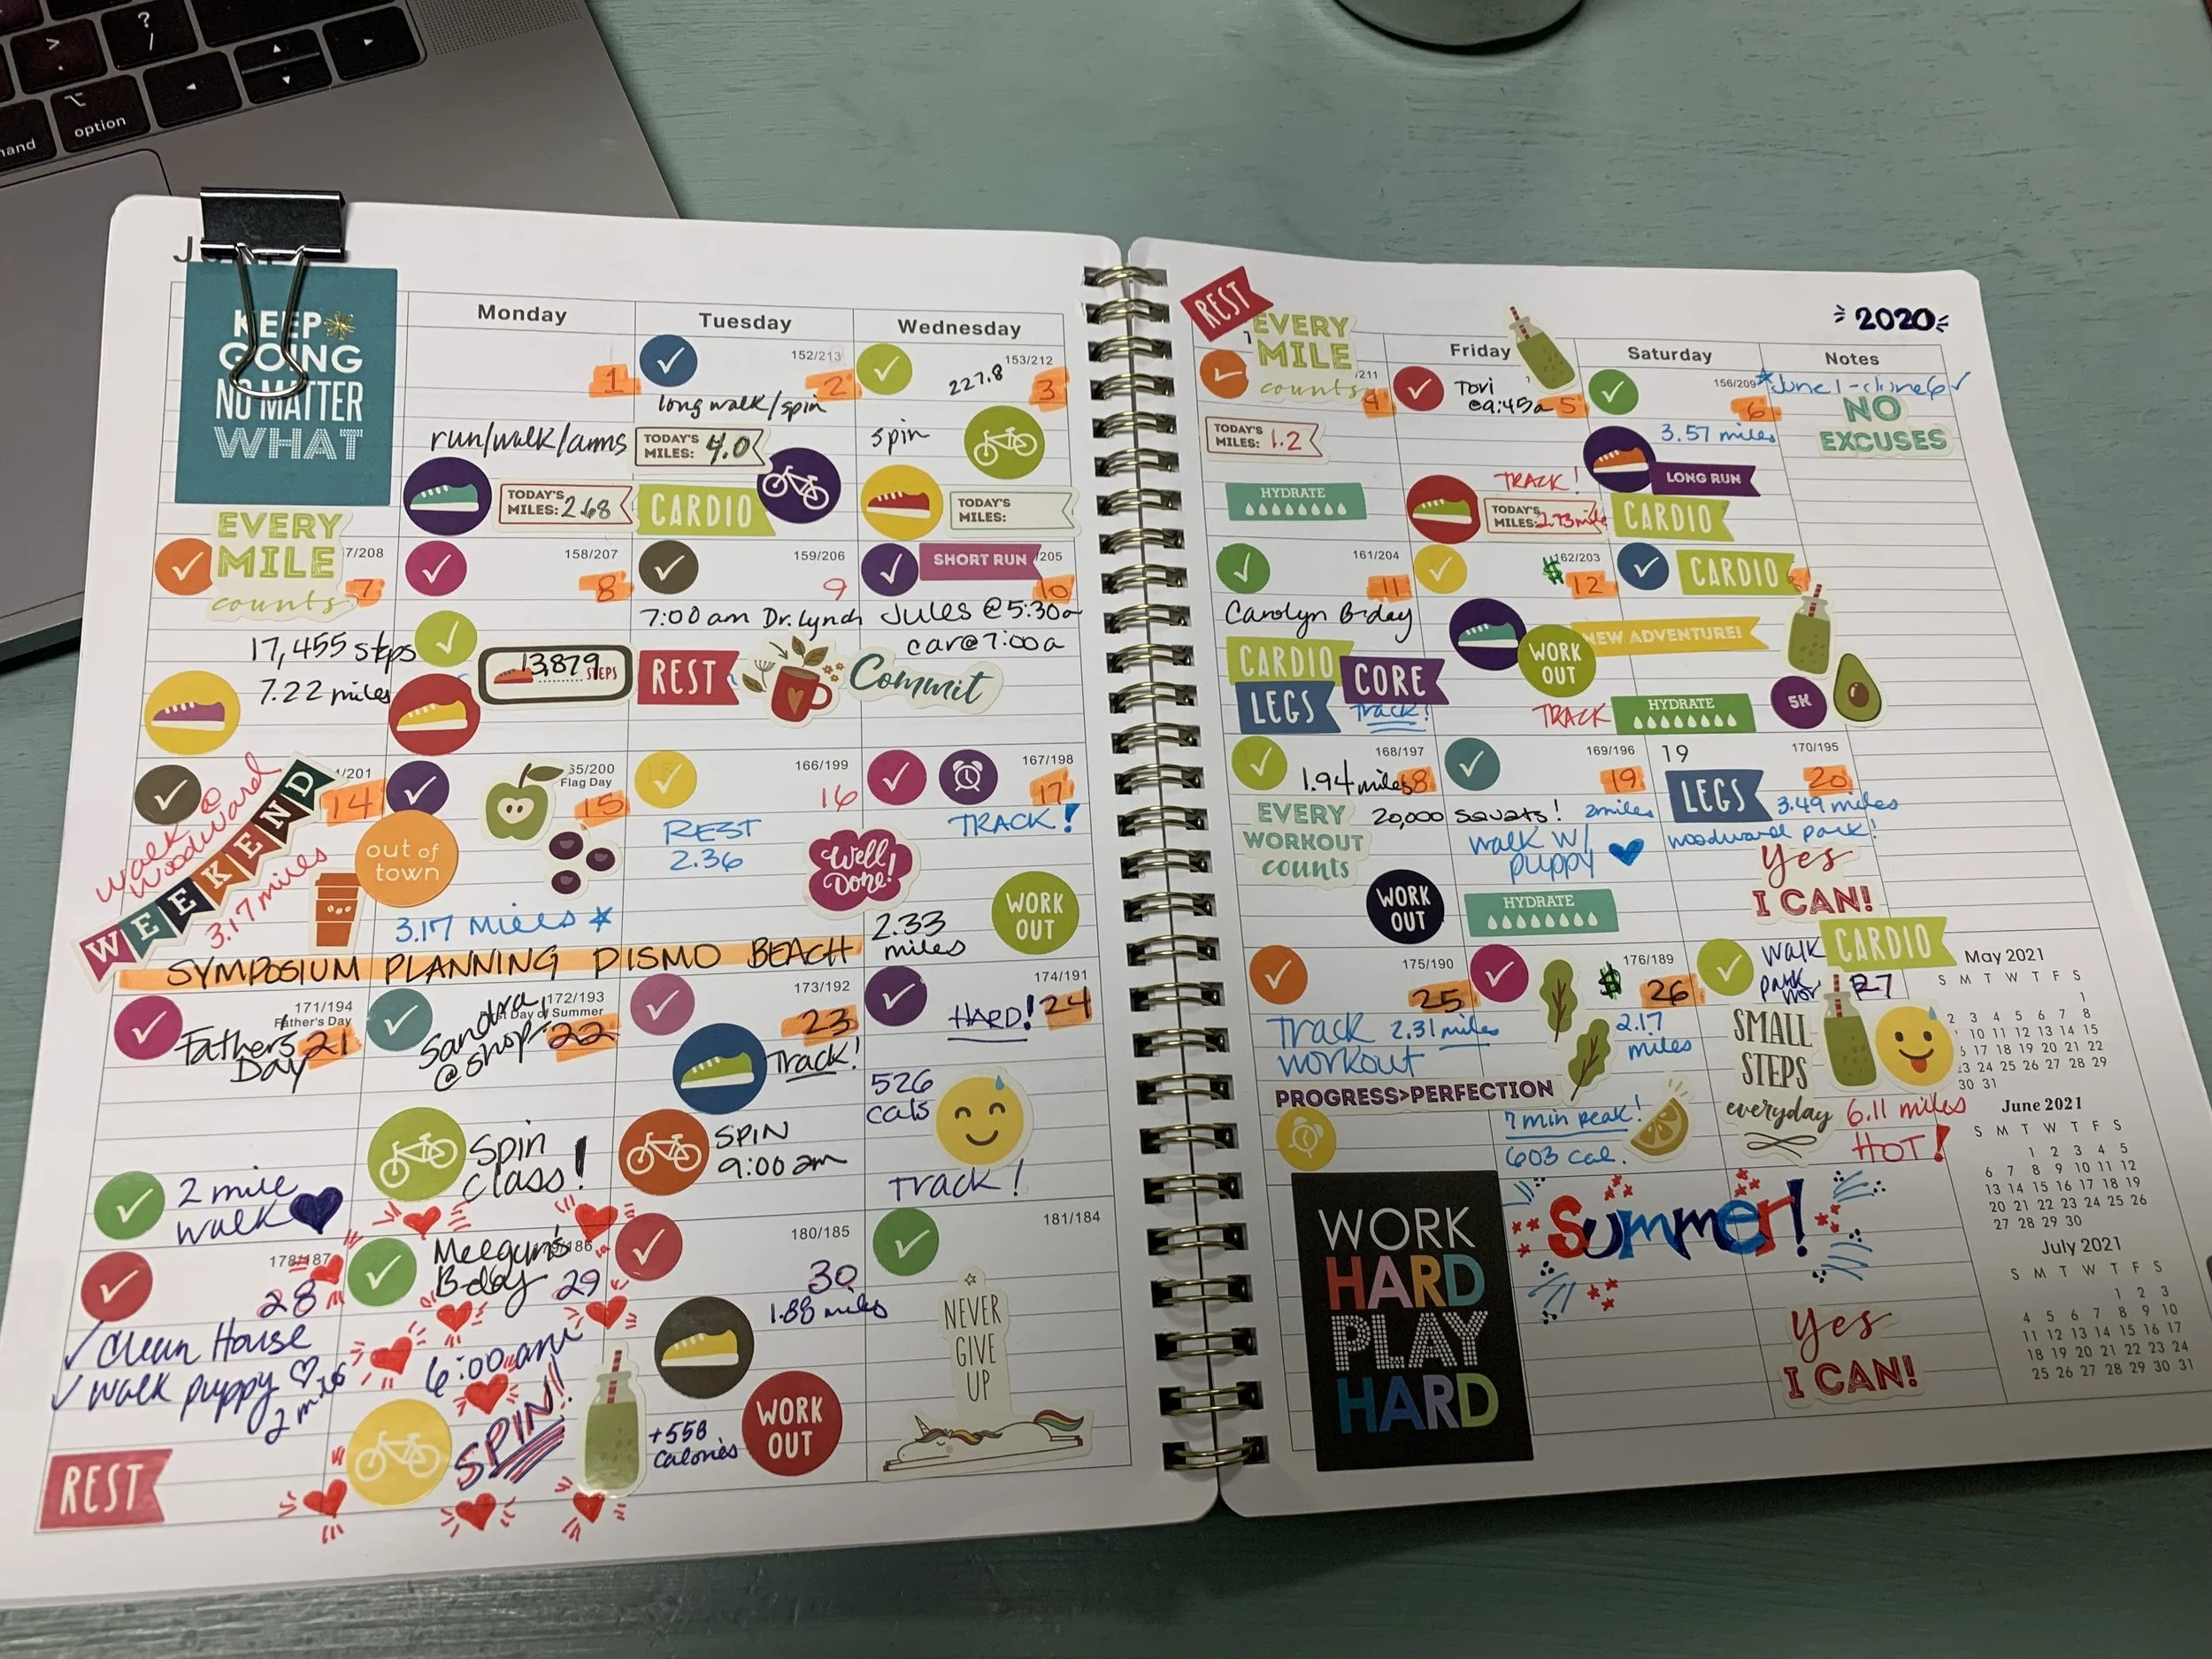 ?
/
>
.
option
J
KEEP
GOING
NO MATTER
WHAT
Monday
Tuesday
Wednesday
1
run/walk/arms
TODAY'S
MILES: 2.68
152/213
2
long walk/spin
TODAY'S
MILES: 4.0
CARDIO
153/212
227.8
3
spin
TODAY'S
MILES:
EVERY
MILE
counts
7/208
7
17,455 steps
7.22 miles
158/207
8
13,879
STEPS
159/206
9
7:00 am Dr. Lynch
REST
SHORT RUN
205
10
Jules @ 5:30a
car@7:00a
Commit
walk @
Woodward
/201
14
WEEKEND
3.17 miles
65/200
Flag Day
15
out of
town
3.17 Miles *
166/199
16
REST
2.36
Well
Done!
167/198
17
TRACK!
2.33
miles
WORK
OUT
SYMPOSIUM PLANNING PISMO BEACH
171/194
Father's Day
Fathers 21
Day
2 mile
walk
172/193
Day of Summer
Sandra
@shop 22
Spin
class!
173/192
23
Track!
SPIN
9:00 am
174/191
HARD! 24
526
cals
Track!
178/187
28
✓ Clean House
✓ walk puppy ♡
REST
/186
B-day 29
6:00am
SPIN!!
180/185
30
1.88 miles
+558
Calories
WORK
OUT
181/184
NEVER
GIVE
UP
REST
EVERY
MILE
counts
2020
Friday
Saturday
Notes
/211
4
TODAY'S
MILES: 1.2
HYDRATE
Tori
@9:45a 5
TRACK!
TODAY'S
MILES: 2.73mile
156/209
6
3.57 miles
LONG RUN
CARDIO
*June 1-June 6✓
NO
EXCUSES
161/204
11
Carolyn B-day
CARDIO
CORE
LEGS
Track!
$
162/203
12
WORK
OUT
TRACK
CARDIO
NEW ADVENTURE!
HYDRATE
5K
168/197
1.94 miles 18
EVERY
WORKOUT
counts
20,000 squats!
WORK
OUT
169/196
19
2miles
walk w/
puppy
HYDRATE
19
170/195
20
LEGS
3.49 miles
woodward park!
Yes
I CAN!
175/190
25
Track 2.31 miles
workout
PROGRESS>PERFECTION
$
176/189
26
2.17
miles
7 min peak!
603 cal.
walk
CARDIO
27
SMALL
STEPS
everyday
6.11 miles
HOT!
WORK
HARD
PLAY
HARD
Summer!
Yes
I CAN!
May 2021
S M T W T F S
1
2 3 4 5 6 7 8
10 11 12 13 14 15
17 18 19 20 21 22
23 24 25 26 27 28 29
30 31
June 2021
S M T W T F S
1 2 3 4 5
6 7 8 9 10 11 12
13 14 15 16 17 18 19
20 21 22 23 24 25 26
27 28 29 30
July 2021
S M T W T F S
1 2 3
4 5 6 7 8 9 10
11 12 13 14 15 16 17
18 19 20 21 22 23 24
25 26 27 28 29 30 31